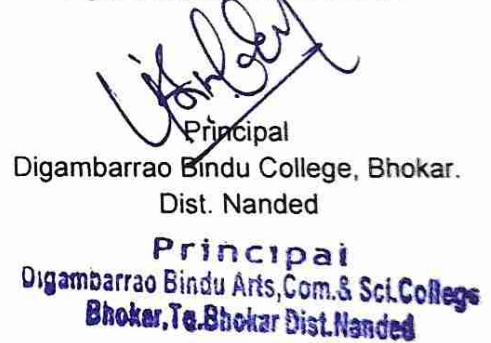 Principal
Digambarrao Bindu College, Bhokar.
Dist. Nanded
Principal
Digambarrao Bindu Arts,Com.& Sci.College
Bhokar,Tq.Bhokar Dist.Nanded